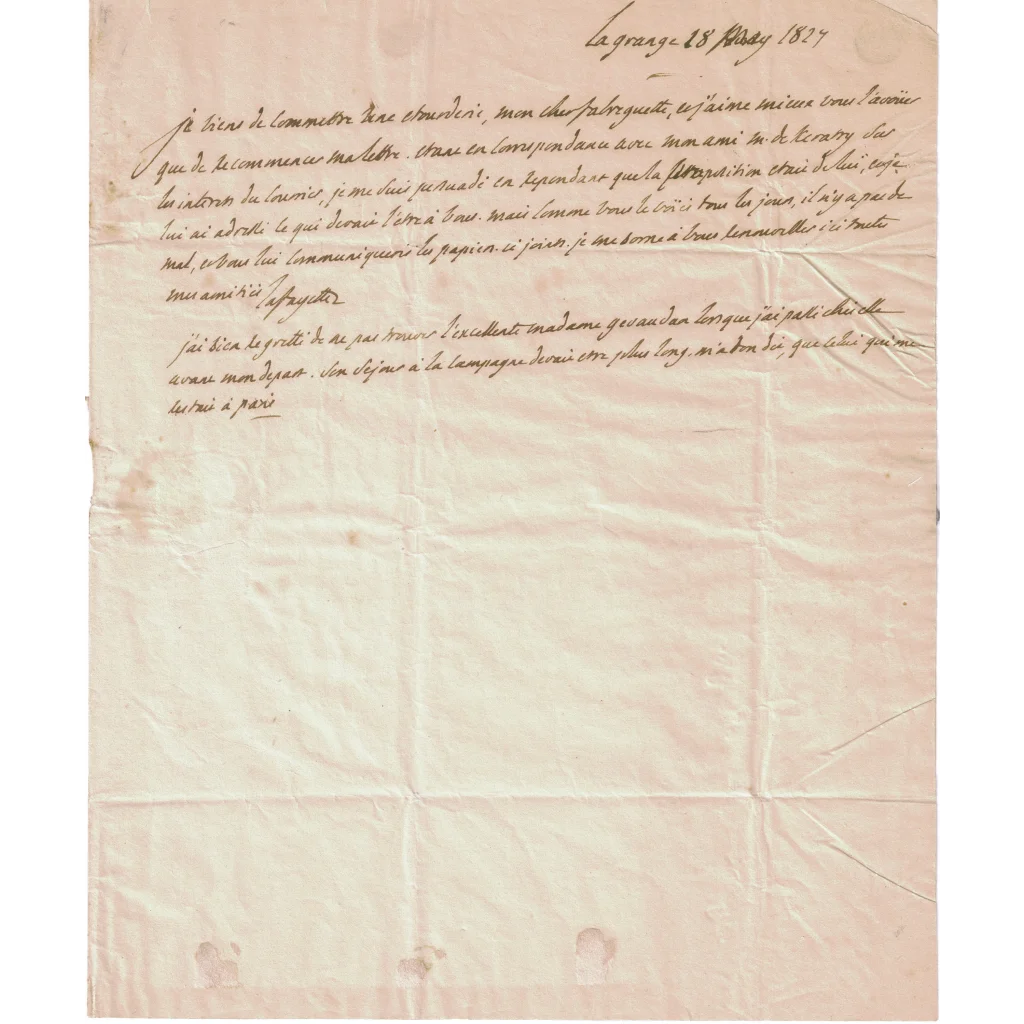 La grange 28 May 1827
je viens de commettre une etourderie, mon cher fabreguette, et j'aime mieux vous l'avoüer
que de recommencer ma lettre. etant en correspondance avec mon ami m. de Keratry sur
les interets du courier, je me suis persuadé en repondant que la proposition etait de lui, et je
lui ai adressé ce qui devait l'etre à vous. mais comme vous le voïés tous les jours, il n'y a pas de
mal, et vous lui communiquerés les papiers ci joints. je me borne à vous renouveller ici toutes
mes amitiés Lafayette
j'ai bien regretté de ne pas trouver l'excellente madame gevaudan lorsque j'ai passé chés elle
avant mon depart. son sejour à la campagne devait etre plus long, m'a t'on dit, que celui qui me
restait à paris